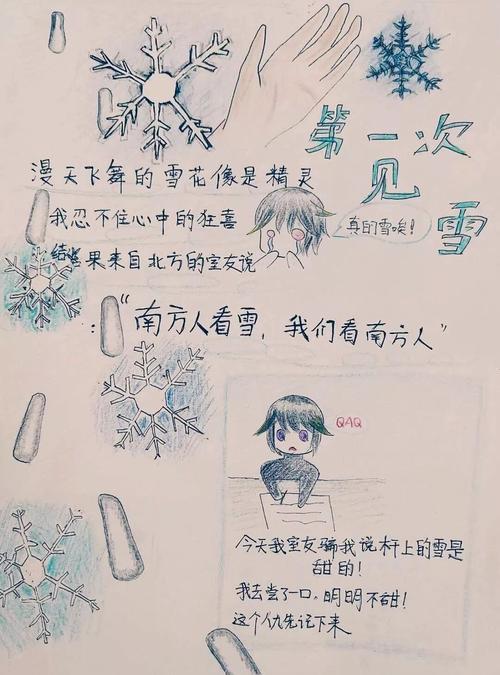 第一次
见
雪
漫天飞舞的雪花像是精灵
我忍不住心中的狂喜
真的雪唉!
结果来自北方的室友说
:“南方人看雪,我们看南方人”
QAQ
今天我室友骗我说杆上的雪是
甜的!
我去尝了一口,明明不甜!
这个仇先记下来